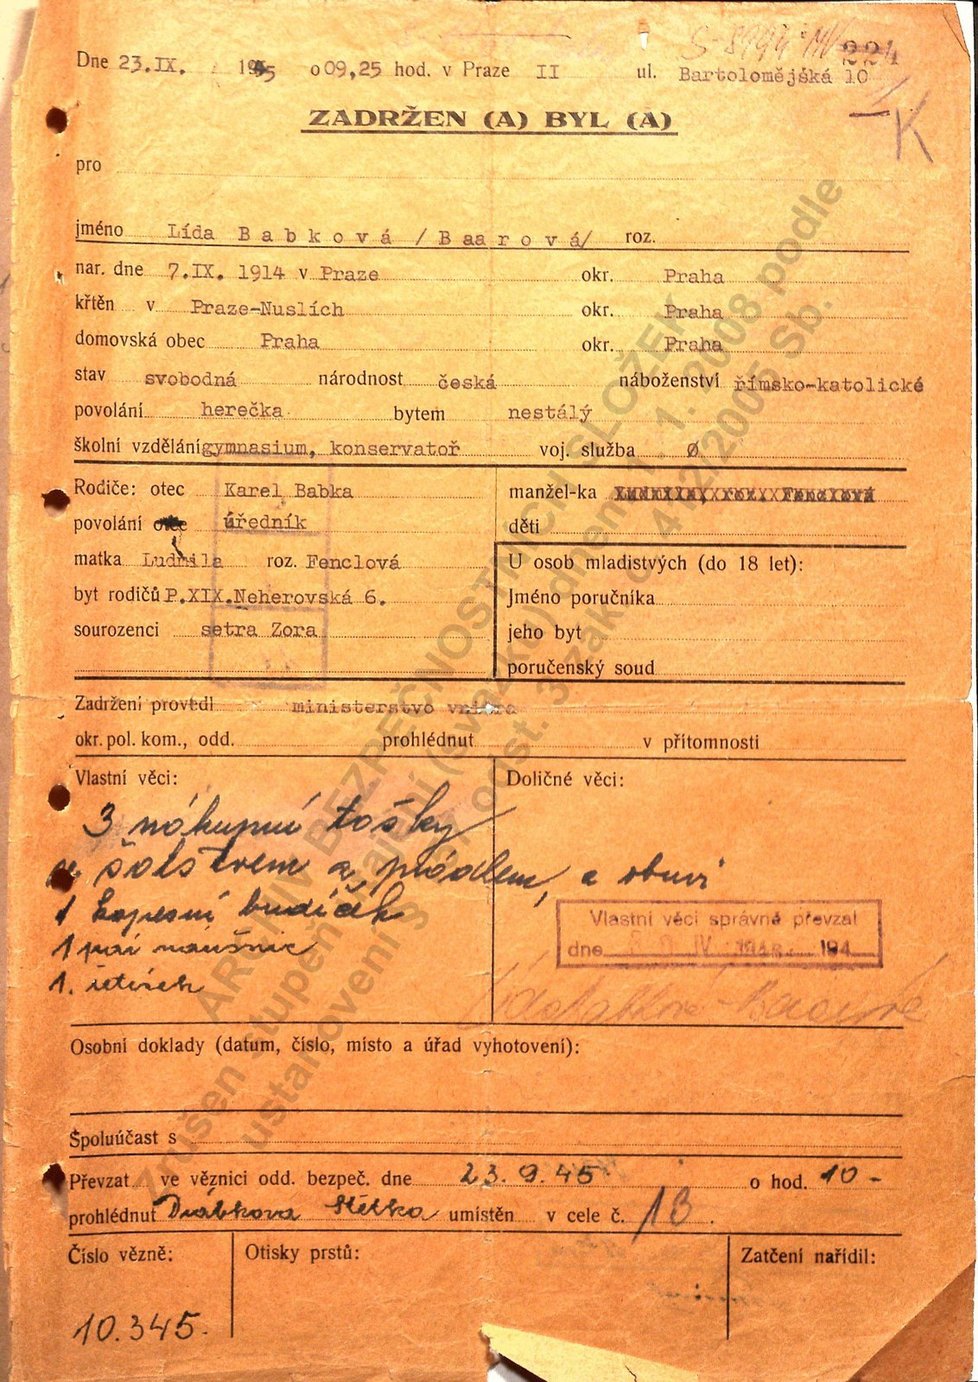 Dne 23.IX. 1945 o 09,25 hod. v Praze II ul. Bartolomějská 10
ZADRŽEN (A) BYL (A)
K
pro
jméno Lída Babková /Baarová/ roz.
nar. dne 7.IX. 1914 v Praze okr. Praha
křtěn v Praze-Nuslích okr. Praha
domovská obec Praha okr. Praha
stav svobodná národnost česká náboženství římsko-katolické
povolání herečka bytem nestálý
školní vzdělání gymnasium, konservatoř voj. služba Ø
Rodiče: otec Karel Babka
povolání otec úředník
matka Ludmila roz. Fenclová
byt rodičů P.XIX.Neherovská 6.
sourozenci setra Zora
manžel-ka
děti
U osob mladistvých (do 18 let):
Jméno poručníka
jeho byt
poručenský soud
Zadržení provedl ministerstvo vnitra
okr. pol. kom., odd. prohlédnut v přítomnosti
Vlastní věci:
3 nákupní tašky
se šatstvem a prádlem, a obuví
1 kapesní budíček
1 pár náušnic
1. řetízek
Doličné věci:
Vlastní věci správně převzal
dne IV. 194
Lída Babková-Baarová
Osobní doklady (datum, číslo, místo a úřad vyhotovení):
Spoluúčast s
Převzat ve věznici odd. bezpeč. dne 23.9.45 o hod. 10-
prohlédnut Drábková umístěn v cele č. 13.
Číslo vězně:
10.345.
Otisky prstů:
Zatčení nařídil:
ARCHIV BEZPEČNOSTNÍCH SLOŽEK
Zrušen stupeň utajení (svazku) dnem 1. 1. 2008 podle
ustanovení § 37 odst. 3 zák. č. 412/2005 Sb.